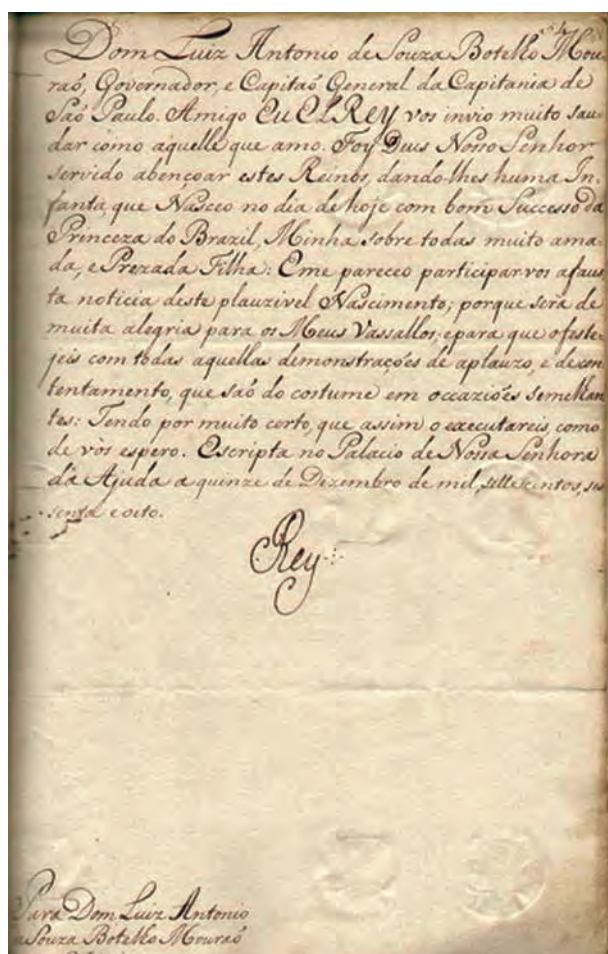 Dom Luiz Antonio de Souza Botelho Mou-
raõ, Governador, e Capitaõ General da Capitania de
Saõ Paulo. Amigo Eu ElRey vos invio muito sau-
dar como aquelle que amo. Foy Deus Nosso Senhor
servido abençoar estes Reinos, dando-lhes huma In-
fanta, que Nasceo no dia de hoje com bom Successo da
Princeza do Brazil, Minha sobre todas muito ama-
da, e Prezada Filha: E me pareceo participar vos a faus-
ta noticia deste plauzivel Nascimento; porque será de
muita alegria para os Meus Vassallos; e para que o feste-
jeis com todas aquellas demonstrações de aplauzo, e de con-
tentamento, que saõ do costume em occaziões semelhan-
tes: Tendo por muito certo, que assim o executareis, como
de vòs espero. Escripta no Palacio de Nossa Senhora
da Ajuda a quinze de Dezembro de mil, settecentos, ses-
senta e oito.
Rey
Para Dom Luiz Antonio
Souza Botelho Mouraõ